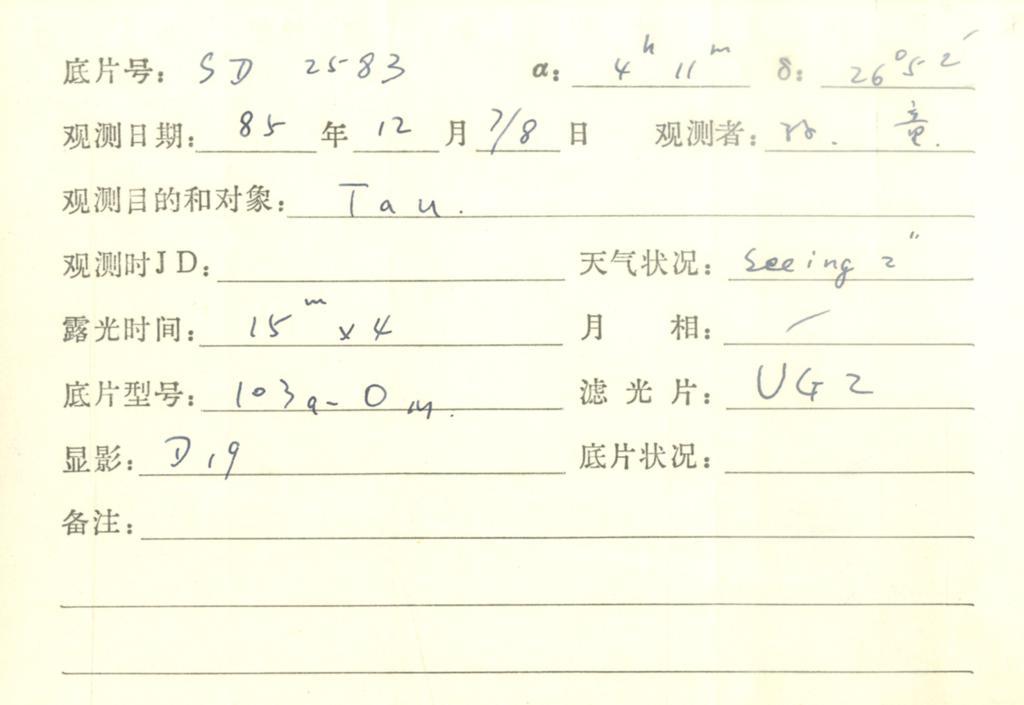 底片号: SD 2583 α: 4h 11m δ: 26°52′
观测日期: 85 年 12 月 7/8 日 观测者: 童.
观测目的和对象: Tau.
观测时JD: 天气状况: Seeing 2″
露光时间: 15m x 4 月 相: /
底片型号: 103a-O 滤光片: UG2
显影: D19 底片状况:
备注: